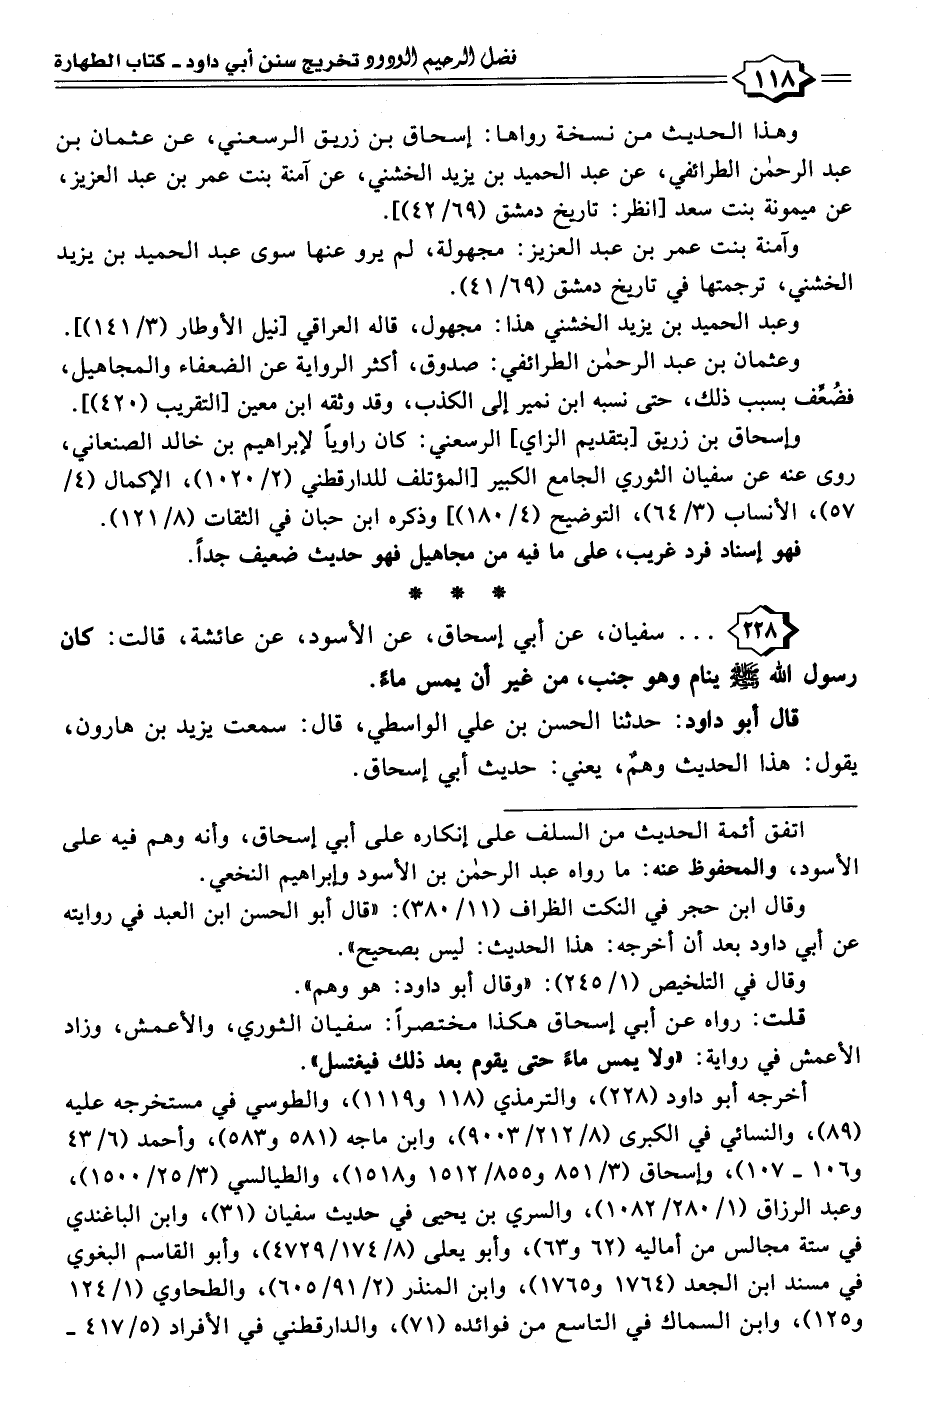 فضل الرحيم الودود تخريج سنن أبي داود ـ كتاب الطهارة
١١٨
وهذا الحديث من نسخة رواها: إسحاق بن زريق الرسعني، عن عثمان بن
عبد الرحمٰن الطرائفي، عن عبد الحميد بن يزيد الخشني، عن آمنة بنت عمر بن عبد العزيز،
عن ميمونة بنت سعد [انظر: تاريخ دمشق (٤٢/٦٩)].
وآمنة بنت عمر بن عبد العزيز: مجهولة، لم يرو عنها سوى عبد الحميد بن يزيد
الخشني، ترجمتها في تاريخ دمشق (٤١/٦٩).
وعبد الحميد بن يزيد الخشني هذا: مجهول، قاله العراقي [نيل الأوطار (١٤١/٣)].
وعثمان بن عبد الرحمٰن الطرائفي: صدوق، أكثر الرواية عن الضعفاء والمجاهيل،
فضُعِّف بسبب ذلك، حتى نسبه ابن نمير إلى الكذب، وقد وثقه ابن معين [التقريب (٤٢٠)].
وإسحاق بن زريق [بتقديم الزاي] الرسعني: كان راوياً لإبراهيم بن خالد الصنعاني،
روى عنه عن سفيان الثوري الجامع الكبير [المؤتلف للدارقطني (١٠٢٠/٢)، الإكمال (٤/
٥٧)، الأنساب (٦٤/٣)، التوضيح (١٨٠/٤)] وذكره ابن حبان في الثقات (١٢١/٨).
فهو إسناد فرد غريب، على ما فيه من مجاهيل فهو حديث ضعيف جداً.
* * *
٢٢٨ ... سفيان، عن أبي إسحاق، عن الأسود، عن عائشة، قالت: كان
رسول الله ﷺ ينام وهو جنب، من غير أن يمس ماءً.
قال أبو داود: حدثنا الحسن بن علي الواسطي، قال: سمعت يزيد بن هارون،
يقول: هذا الحديث وهمٌ، يعني: حديث أبي إسحاق.
اتفق أئمة الحديث من السلف على إنكاره على أبي إسحاق، وأنه وهم فيه على
الأسود، والمحفوظ عنه: ما رواه عبد الرحمٰن بن الأسود وإبراهيم النخعي.
وقال ابن حجر في النكت الظراف (٣٨٠/١١): «قال أبو الحسن ابن العبد في روايته
عن أبي داود بعد أن أخرجه: هذا الحديث: ليس بصحيح».
وقال في التلخيص (٢٤٥/١): «وقال أبو داود: هو وهم».
قلت: رواه عن أبي إسحاق هكذا مختصراً: سفيان الثوري، والأعمش، وزاد
الأعمش في رواية: «ولا يمس ماءً حتى يقوم بعد ذلك فيغتسل».
أخرجه أبو داود (٢٢٨)، والترمذي (١١٨ و١١١٩)، والطوسي في مستخرجه عليه
(٨٩)، والنسائي في الكبرى (٩٠٠٣/٢١٢/٨)، وابن ماجه (٥٨١ و٥٨٣)، وأحمد (٤٣/٦
و١٠٦ ـ ١٠٧)، وإسحاق (٨٥١/٣ و١٥١٢/٨٥٥ و١٥١٨)، والطيالسي (١٥٠٠/٢٥/٣)،
وعبد الرزاق (١٠٨٢/٢٨٠/١)، والسري بن يحيى في حديث سفيان (٣١)، وابن الباغندي
في ستة مجالس من أماليه (٦٢ و٦٣)، وأبو يعلى (٤٧٢٩/١٧٤/٨)، وأبو القاسم البغوي
في مسند ابن الجعد (١٧٦٤ و١٧٦٥)، وابن المنذر (٦٠٥/٩١/٢)، والطحاوي (١٢٤/١
و١٢٥)، وابن السماك في التاسع من فوائده (٧١)، والدارقطني في الأفراد (٤١٧/٥ ـ